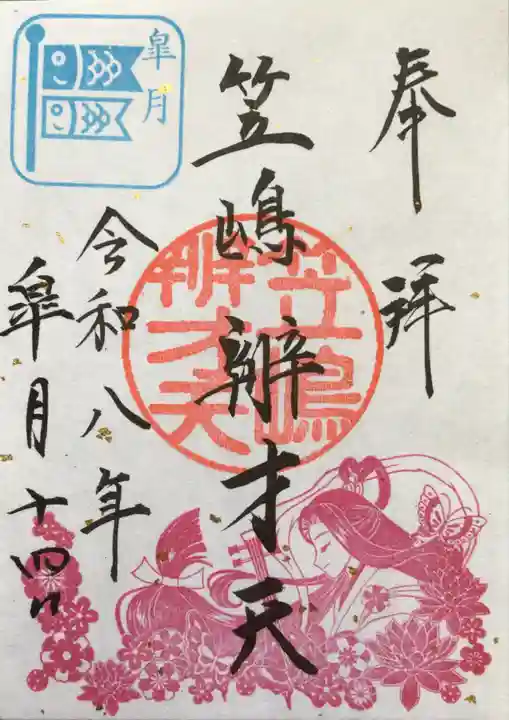 奉拝
笠嶋辨才天
笠嶋
辨才天
皐月
令和八年
皐月十四日